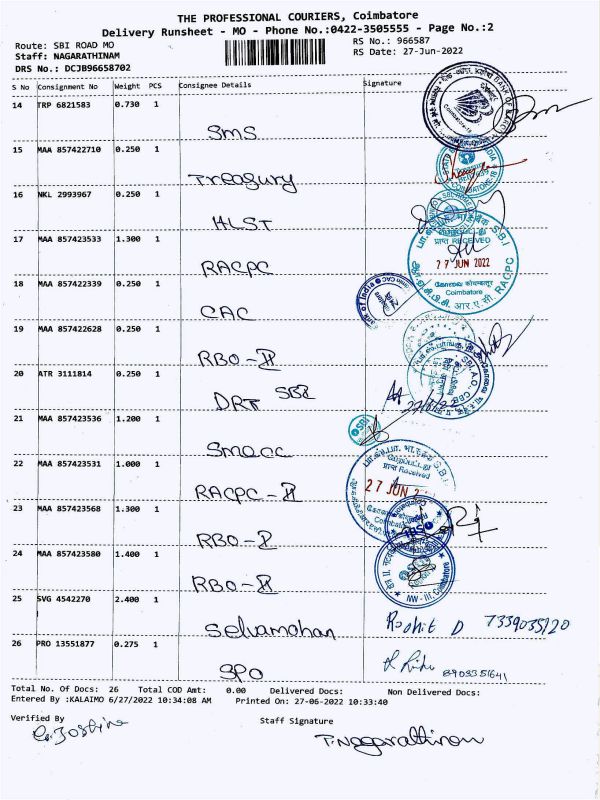 THE PROFESSIONAL COURIERS, Coimbatore
Delivery Runsheet - MO - Phone No.:0422-3505555 - Page No.:2
Route: SBI ROAD MO
RS No.: 966587
Staff: NAGARATHINAM
RS Date: 27-Jun-2022
DRS No.: DCJB96658702
S No Consignment No Weight PCS Consignee Details Signature
14 TRP 6821583 0.730 1
SMS
15 MAA 857422710 0.250 1
Treasury
16 NKL 2993967 0.250 1
HLST
17 MAA 857423533 1.300 1
RACPC
प्राप्त RECEIVED
27 JUN 2022
Coimbatore
18 MAA 857422339 0.250 1
CAC
19 MAA 857422628 0.250 1
RBO-II
20 ATR 3111814 0.250 1
DRT SBI
21 MAA 857423536 1.200 1
SBI
SMECC
22 MAA 857423531 1.000 1
RACPC-II
प्राप्त Received
27 JUN
23 MAA 857423568 1.300 1
RBO-I
24 MAA 857423580 1.400 1
RBO-II
NW-III, Coimbatore
25 SVG 4542270 2.400 1
Selvamohan
Rohit D 7339035120
26 PRO 13551877 0.275 1
SPO
Total No. Of Docs: 26 Total COD Amt: 0.00 Delivered Docs: Non Delivered Docs:
Entered By :KALAIMO 6/27/2022 10:34:08 AM Printed On: 27-06-2022 10:33:40
Verified By
Staff Signature
T.Nagarathinam